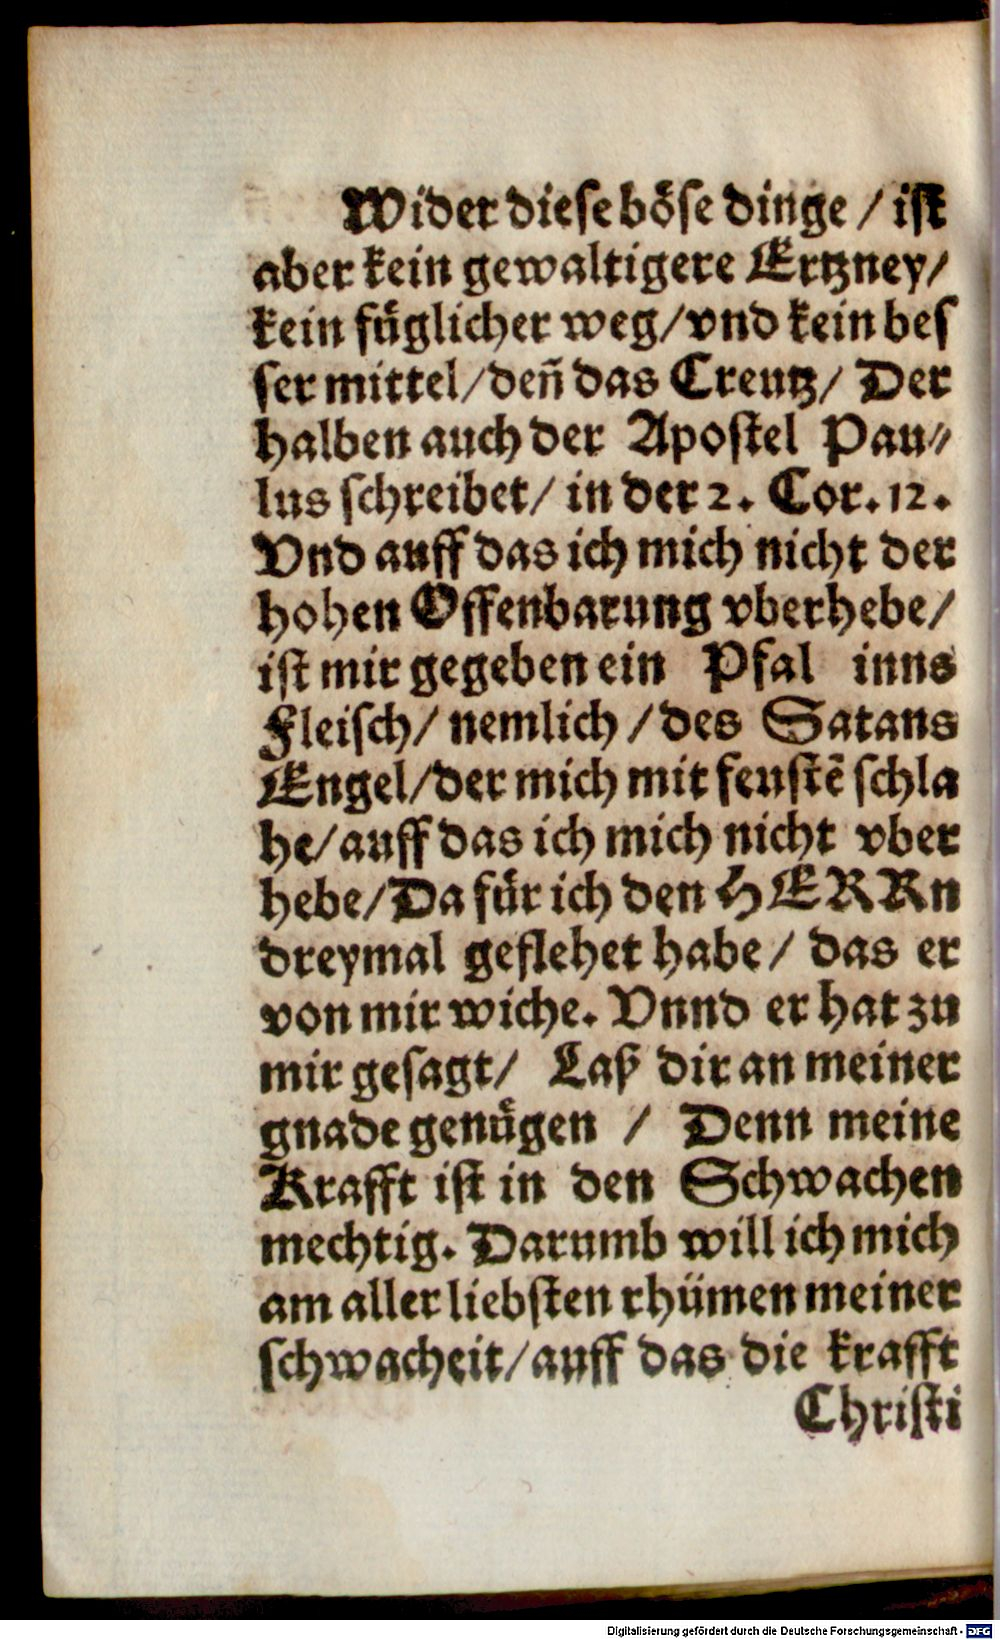 Wider diese böse dinge / ist
aber kein gewaltigere Ertzney/
kein füglicher weg/vnd kein bes
ser mittel/deñ das Creutz/ Der
halben auch der Apostel Pau⸗
lus schreibet/ in der 2. Cor. 12.
Vnd auff das ich mich nicht der
hohen Offenbarung vberhebe/
ist mir gegeben ein Pfal inns
Fleisch/ nemlich /des Satans
Engel/der mich mit feustẽ schla
he/auff das ich mich nicht vber
hebe/Da für ich den HERRn
dreymal geflehet habe/ das er
von mir wiche. Vnnd er hat zu
mir gesagt/ Laß dir an meiner
gnade genügen / Denn meine
Krafft ist in den Schwachen
mechtig. Darumb will ich mich
am aller liebsten rhümen meiner
schwacheit/auff das die krafft
Christi
Digitalisierung gefördert durch die Deutsche Forschungsgemeinschaft - DFG